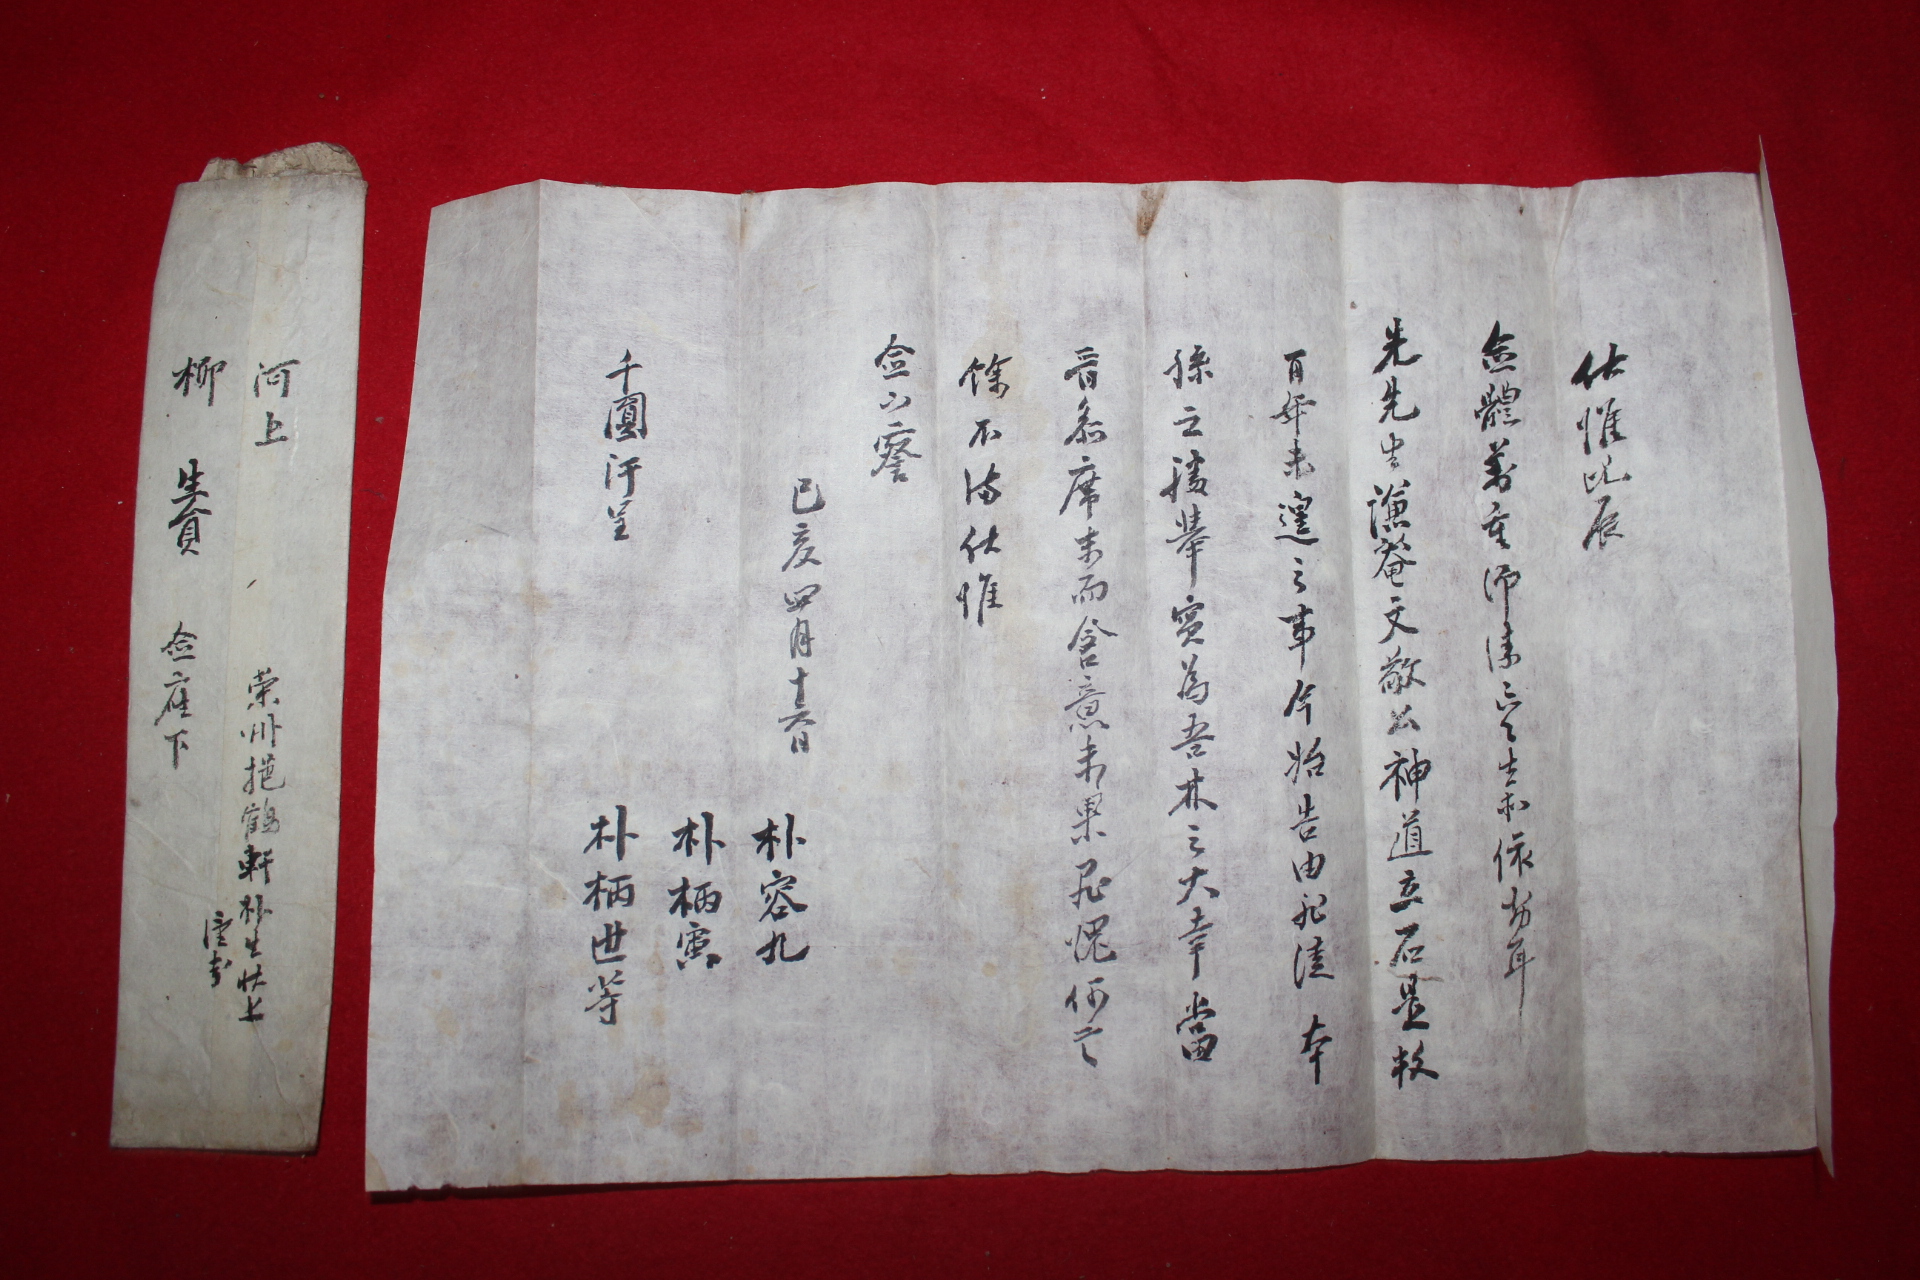 伏惟此辰
僉體萬重仰溸區區生亦依劣耳
先先生謙菴文敬公神道立石是數
百年未遑之事今始告由 本
孫之 擧實為吾林之大幸當
晉參席末而含意未果 愧何言
餘不備伏惟
僉下察
己亥四月十六日
朴容九
朴柄寅
朴柄世等
千圓汗呈
河上
柳生員僉座下
榮州挹鶴軒朴生狀上
謹封